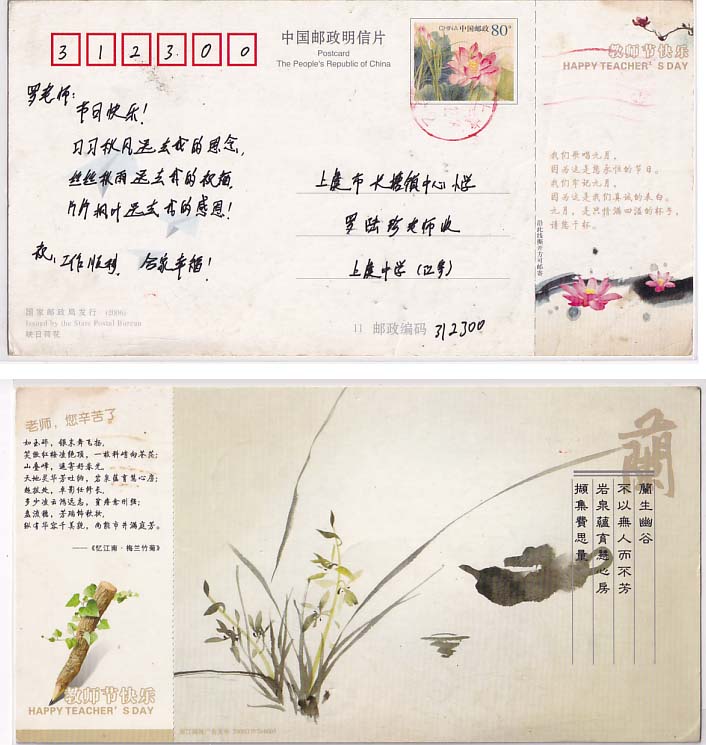 312300
中国邮政明信片
Postcard
The People's Republic of China
CHINA 中国邮政 80分
教师节快乐
HAPPY TEACHER'S DAY
罗老师:
节日快乐!
习习秋风送去我的思念,
丝丝秋雨送去我的祝福,
片片枫叶送去我的感恩!
祝:工作顺利 合家幸福!
上虞市 镇中心小学
罗 老师收
上虞中学
我们歌唱九月,
因为这是您永恒的节日。
我们牢记九月,
因为这是我们真诚的表白。
九月,是只情满四溢的杯子,
请您干杯。
沿此线撕开方可邮寄
国家邮政局发行 (2006)
Issued by the State Postal Bureau
映日荷花
11 邮政编码 312300
老师,您辛苦了
如玉碎,银末舞飞扬。
笑傲红梅凌绝顶,一枝料峭向苍茫;
山叠峰,遥寄好春光。
天地灵华芳吐物,岩泉蕴育慧心房;
越拔处,卓影任修长。
多少凌云鸿远志,贫瘠愈刚强;
盘流穗,芳瑞饰秋妆。
纵有华容千美艳,尚能市井满庭芳。
——《忆江南·梅兰竹菊》
教师节快乐
HAPPY TEACHER'S DAY
蘭
蘭生幽谷
不以無人而不芳
岩泉蘊育慧心房
擷集費思量